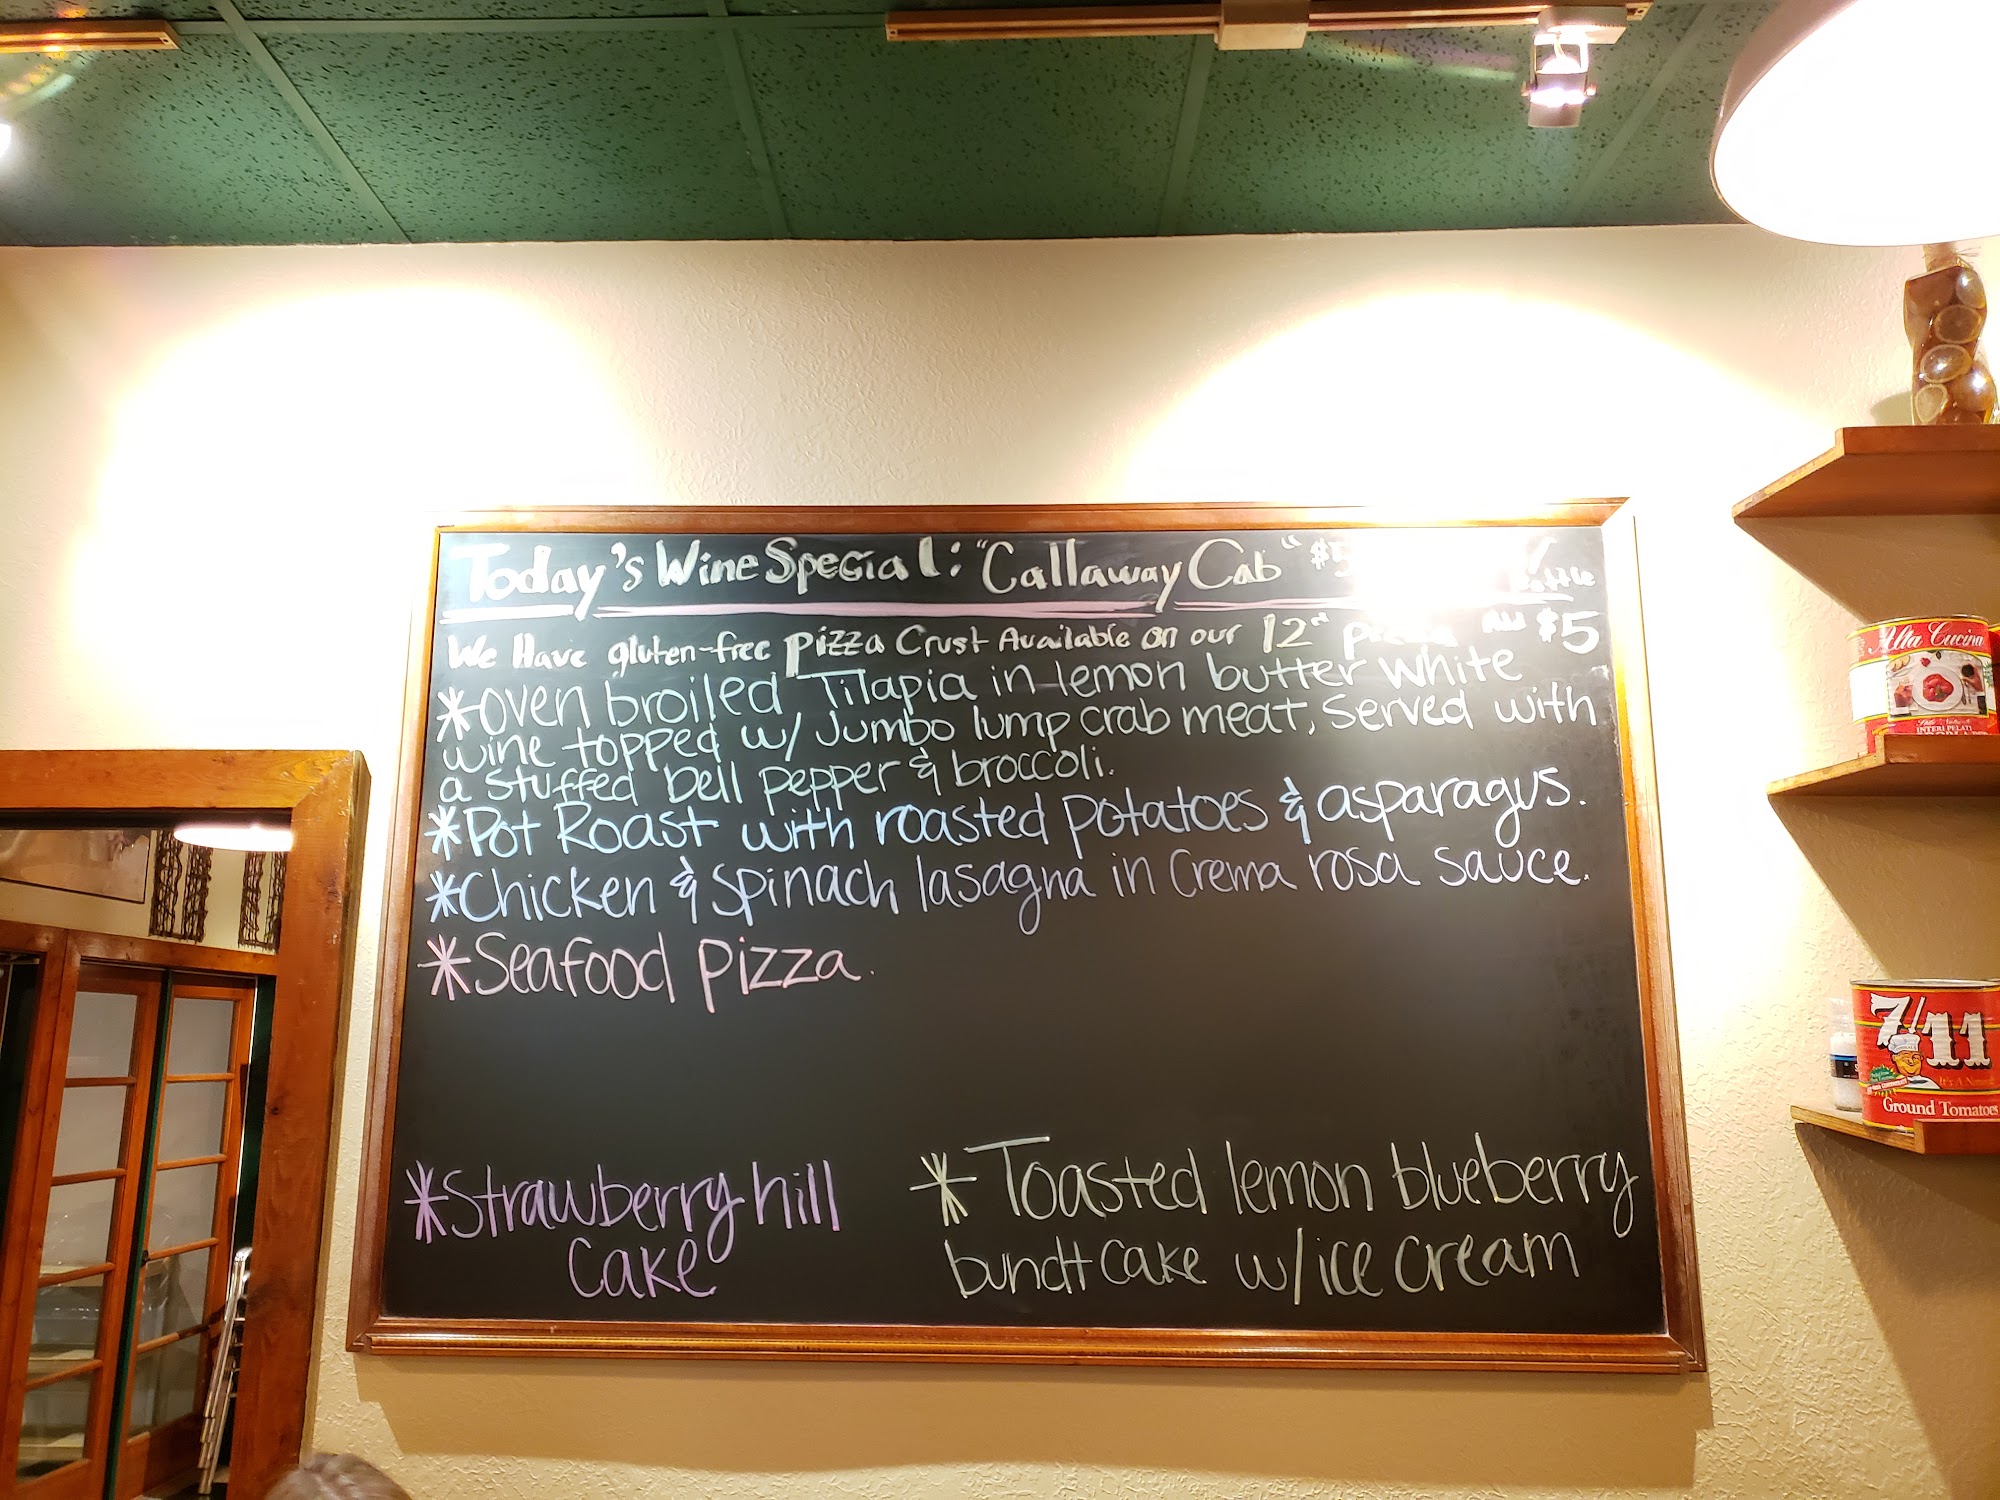 Today's Wine Special: "Callaway Cab" $5
Bottle
We Have gluten-free pizza Crust Available on our 12" pizza $5
*oven broiled Tilapia in lemon butter white
wine topped w/ Jumbo lump crab meat, Served with
a stuffed bell pepper & broccoli.
*Pot Roast with roasted potatoes & asparagus.
*Chicken & spinach lasagna in Crema rosa sauce.
*Seafood pizza.
*Strawberry hill
Cake
*Toasted lemon blueberry
bundt cake w/ice cream
Alta Cucina
INTERI PELATI
7/11
It's A
Ground Tomatoes